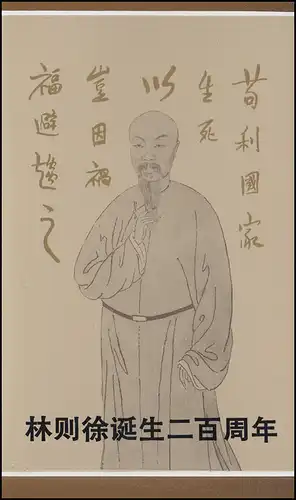 苟利國家
生死
以
豈因禍
福避趨之
林则徐诞生二百周年